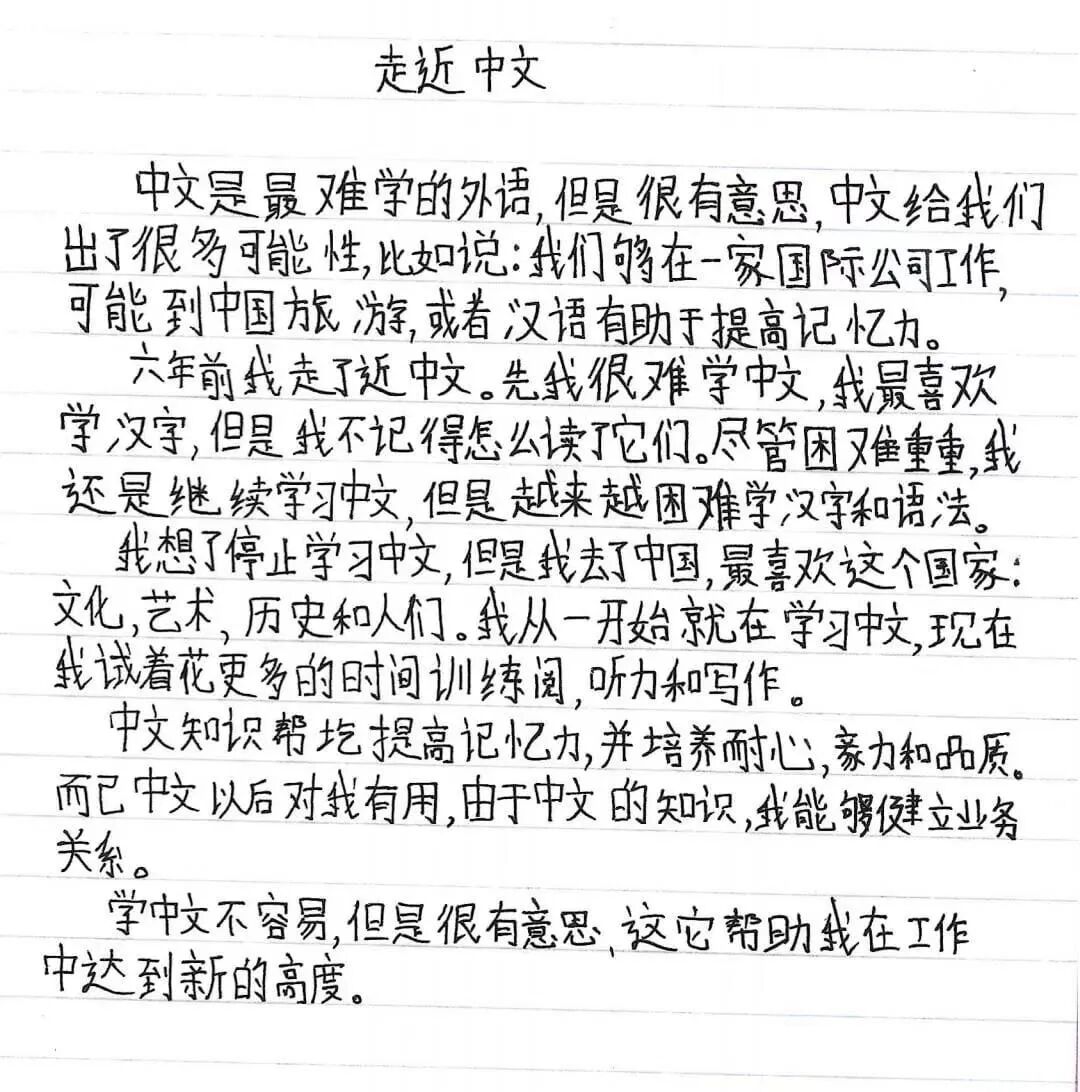 走近中文
中文是最难学的外语,但是很有意思,中文给我们
出了很多可能性,比如说:我们够在一家国际公司工作,
可能到中国旅游,或者汉语有助于提高记忆力。
六年前我走了近中文。先我很难学中文,我最喜欢
学汉字,但是我不记得怎么读了它们。尽管困难重重,我
还是继续学习中文,但是越来越困难学汉字和语法。
我想了停止学习中文,但是我去了中国,最喜欢这个国家:
文化,艺术,历史和人们。我从一开始就在学习中文,现在
我试着花更多的时间训练阅,听力和写作。
中文知识帮圪提高记忆力,并培养耐心,豪力和品质。
而已中文以后对我有用,由于中文的知识,我能够健立业务
关系。
学中文不容易,但是很有意思,这它帮助我在工作
中达到新的高度。